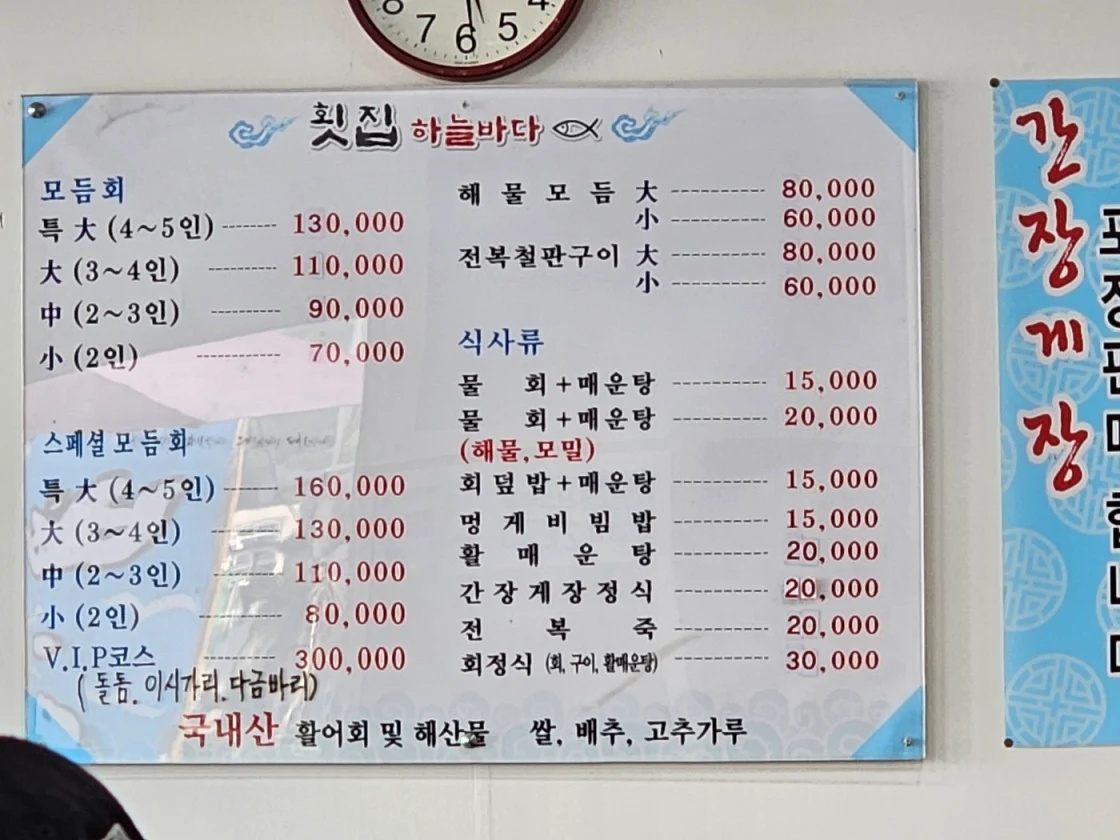 8 7 6 5 4
횟집 하늘바다
모듬회
특 大 (4~5인) 130,000
大 (3~4인) 110,000
中 (2~3인) 90,000
小 (2인) 70,000
스페셜모듬회
특 大 (4~5인) 160,000
大 (3~4인) 130,000
中 (2~3인) 110,000
小 (2인) 80,000
V.I.P코스 300,000
(돌돔. 이시가리. 다금바리)
해물모듬 大 80,000
小 60,000
전복철판구이 大 80,000
小 60,000
식사류
물 회+매운탕 15,000
물 회+매운탕 20,000
(해물,모밀)
회덮밥+매운탕 15,000
멍게비빔밥 15,000
활매운탕 20,000
간장게장정식 20,000
전복죽 20,000
회정식 (회, 구이, 활매운탕) 30,000
국내산 활어회 및 해산물 쌀, 배추, 고추가루
간장게장